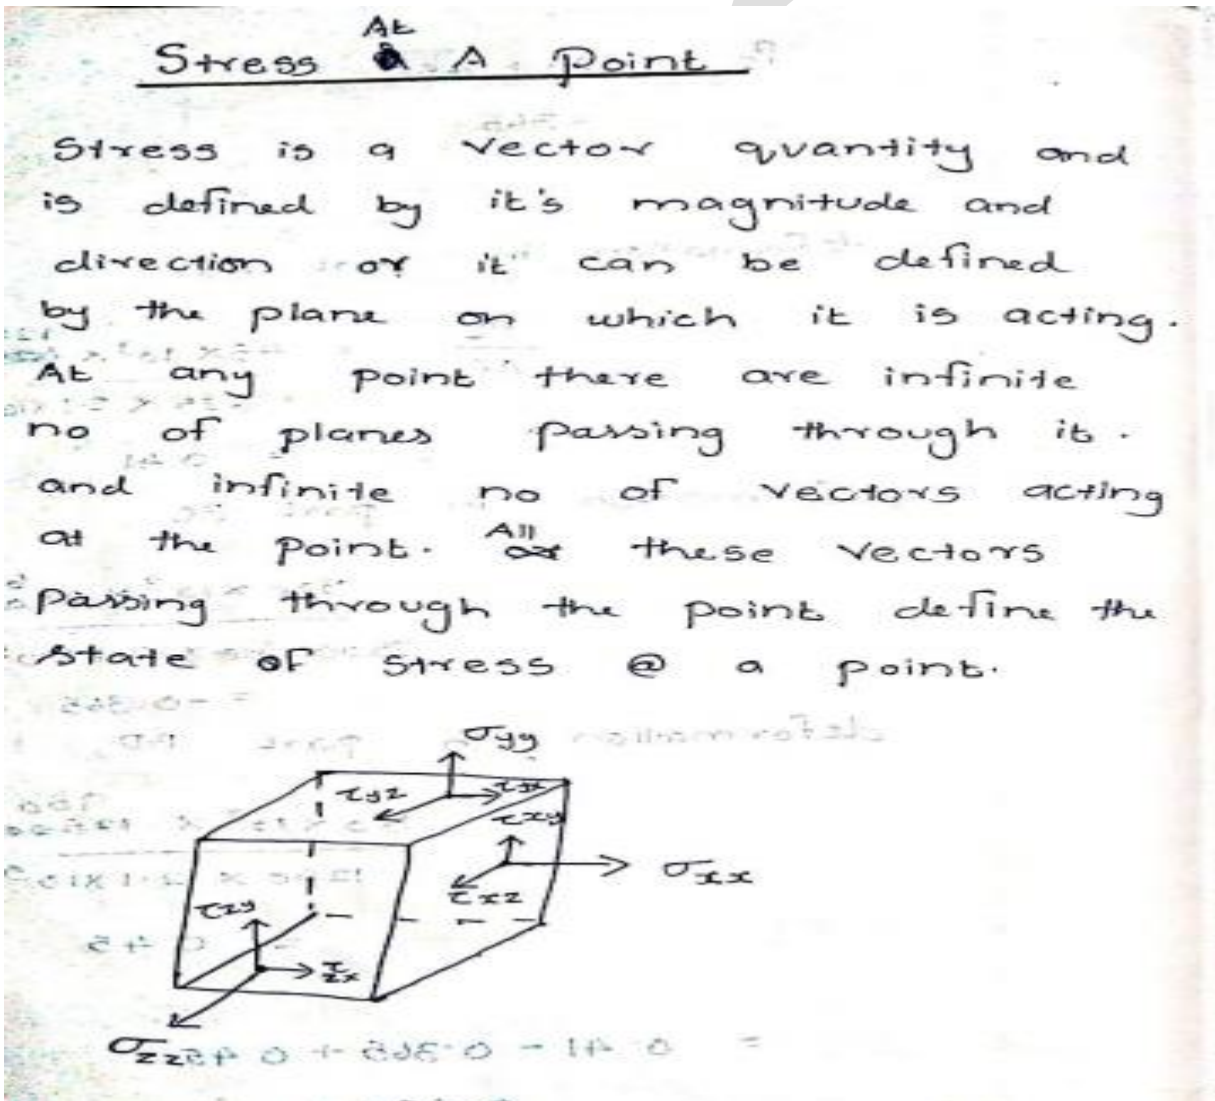 Stress At A Point
Stress is a vector quantity and
is defined by it's magnitude and
direction or it can be defined
by the plane on which it is acting.
At any point there are infinite
no of planes passing through it.
and infinite no of vectors acting
at the point. All these vectors
passing through the point define the
state of stress @ a point.
σyy
τyz τyx
τxy
σxx
τxz
τzy
τzx
σzz